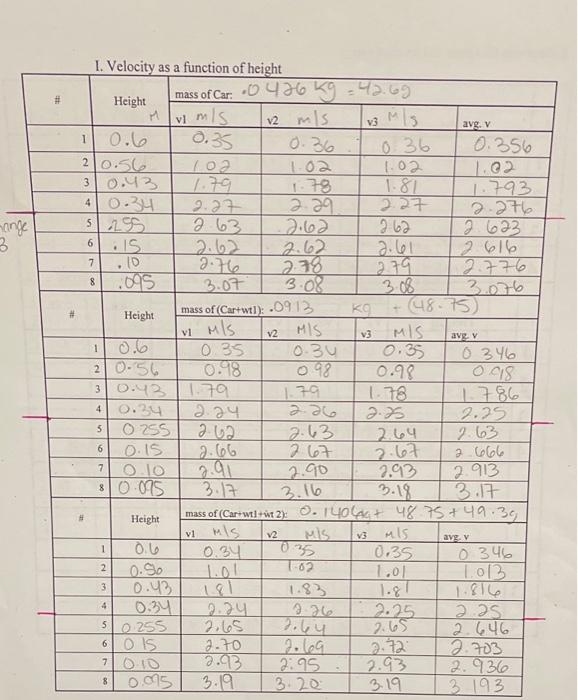 I. Velocity as a function of height
# Height M mass of Car: .0426 kg = 42.6g
v1 m/s v2 m/s v3 M/s avg. v
1 0.6 0.35 0.36 0.36 0.356
2 0.56 1.02 1.02 1.02 1.02
3 0.43 1.79 1.78 1.81 1.793
4 0.34 2.27 2.29 2.27 2.276
5 .255 2.63 2.62 2.62 2.623
6 .15 2.62 2.62 2.61 2.616
7 .10 2.76 2.78 2.79 2.776
8 .095 3.07 3.08 3.08 3.076
# Height mass of (Car+wt1): .0913 kg + (48.75)
v1 M/S v2 M/S v3 M/S avg. v
1 0.6 0.35 0.34 0.35 0.346
2 0.56 0.98 0.98 0.98 0.98
3 0.43 1.79 1.79 1.78 1.786
4 0.34 2.24 2.26 2.25 2.25
5 0.255 2.62 2.63 2.64 2.63
6 0.15 2.66 2.67 2.67 2.666
7 0.10 2.91 2.90 2.93 2.913
8 0.095 3.17 3.16 3.18 3.17
# Height mass of (Car+wt1+wt 2): 0.1406kg + 48.75 + 49.3g
v1 M/S v2 M/S v3 M/S avg. v
1 0.6 0.34 0.35 0.35 0.346
2 0.56 1.01 1.02 1.01 1.013
3 0.43 1.81 1.83 1.81 1.816
4 0.34 2.24 2.26 2.25 2.25
5 0.255 2.65 2.64 2.65 2.646
6 0.15 2.70 2.69 2.72 2.703
7 0.10 2.93 2.95 2.93 2.936
8 0.095 3.19 3.20 3.19 3.193